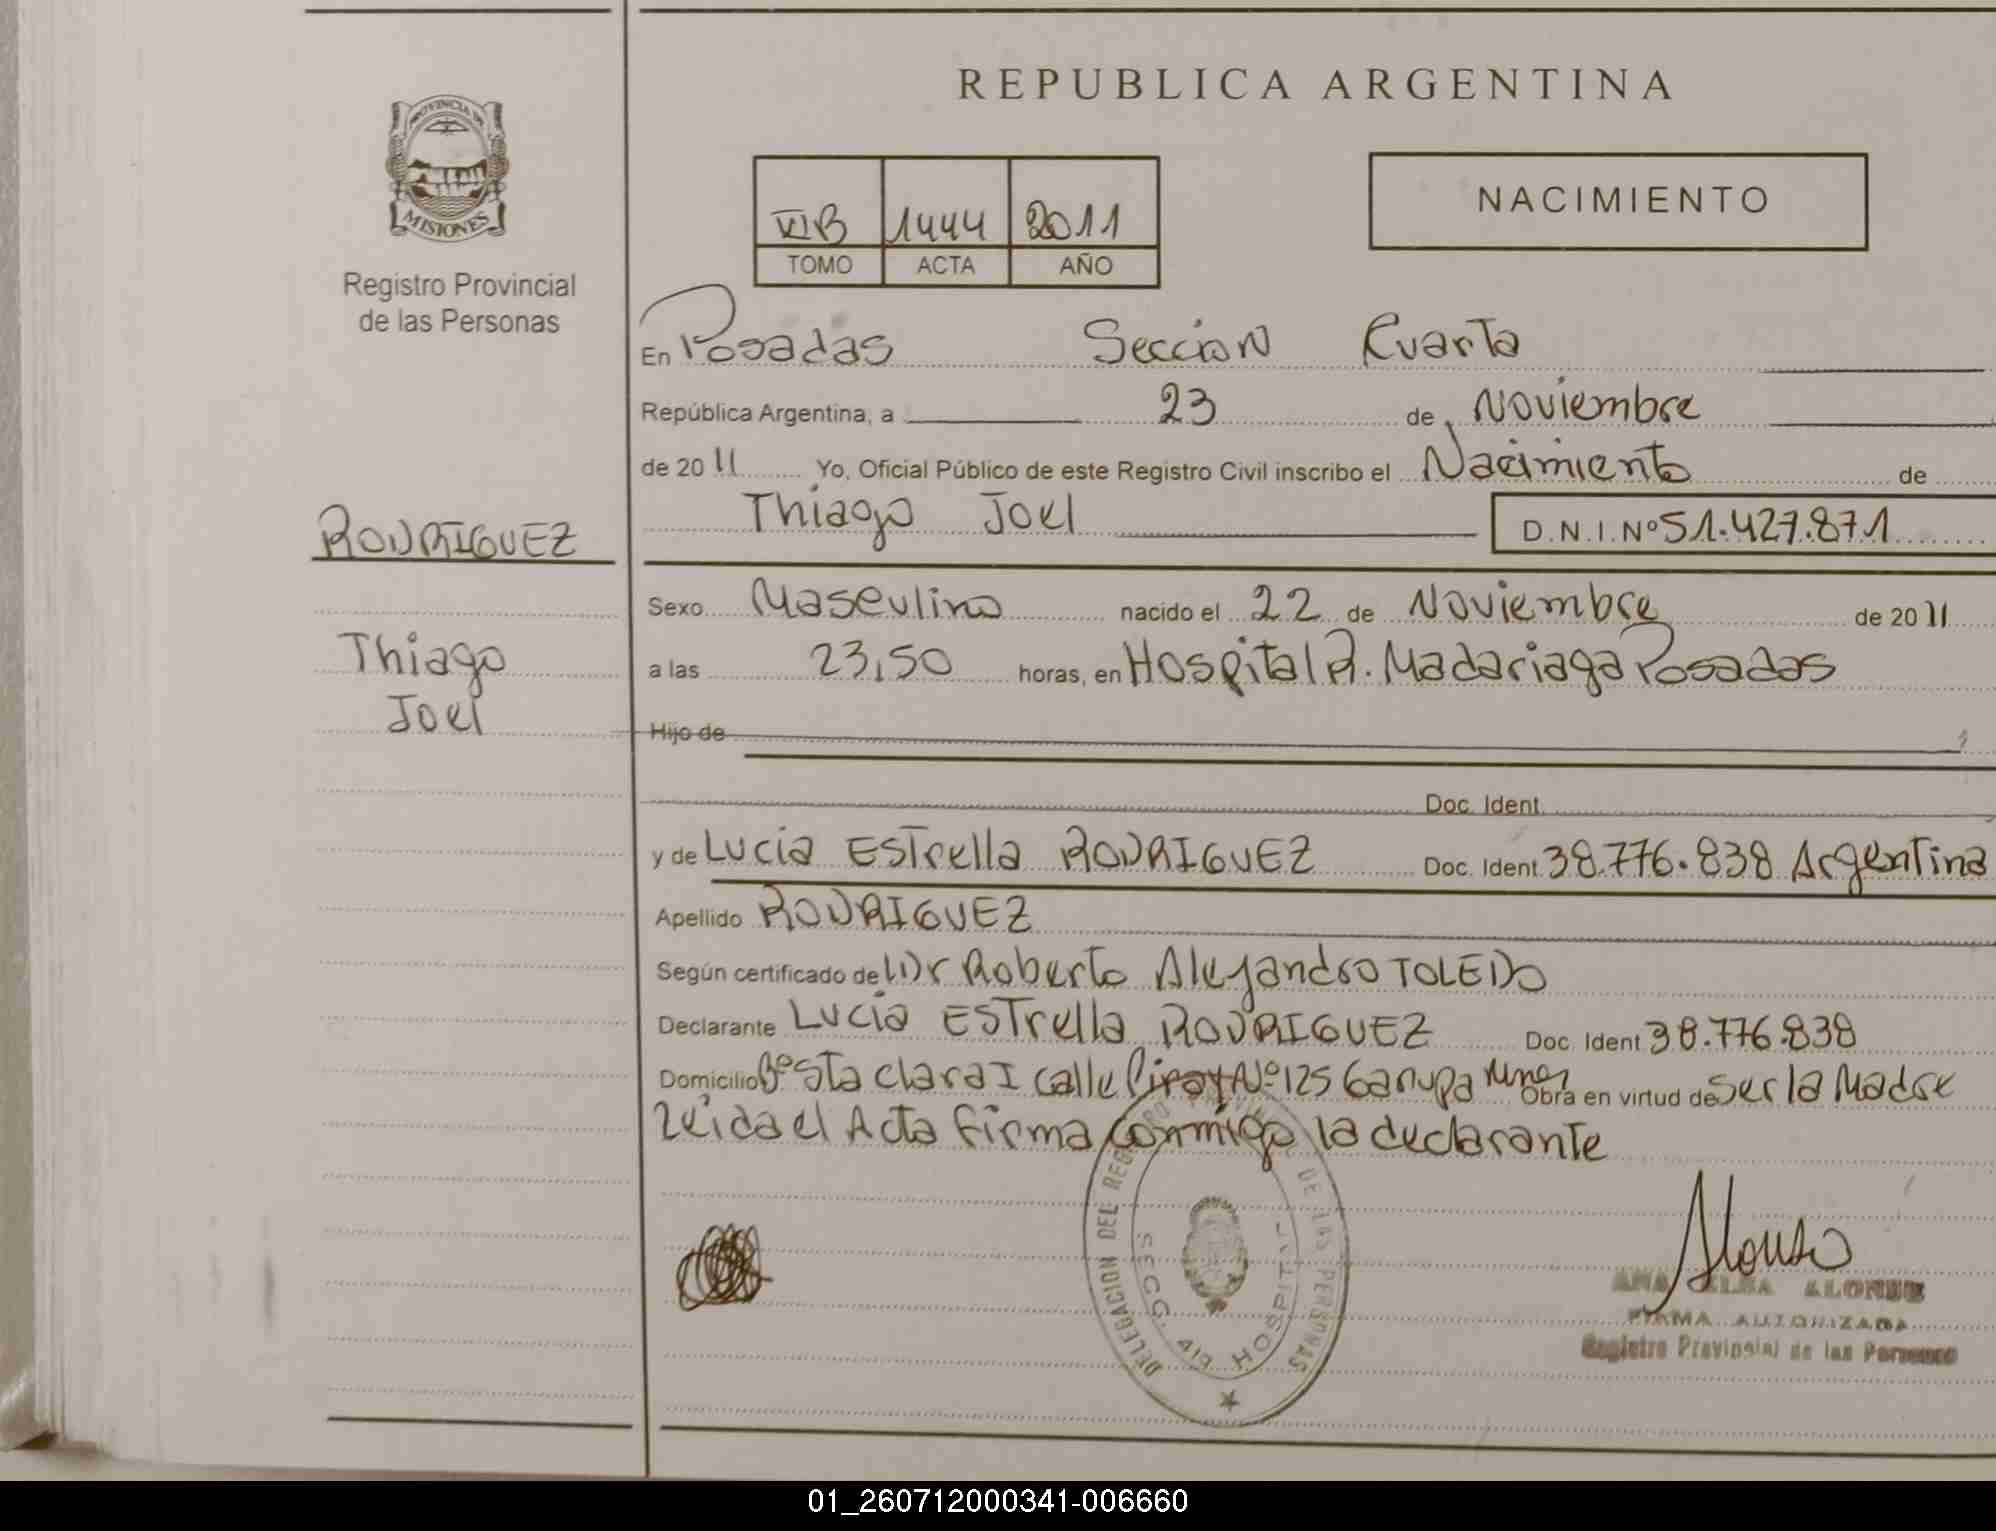 REPUBLICA ARGENTINA
PROVINCIA DE
MISIONES
Registro Provincial
de las Personas
NACIMIENTO
VIB 1444 2011
TOMO ACTA AÑO
En Posadas Sección Cuarta
República Argentina, a 23 de Noviembre
de 2011 Yo, Oficial Público de este Registro Civil inscribo el Nacimiento de
Thiago Joel D.N.I.Nº 51.427.871
RODRIGUEZ
Thiago
Joel
Sexo Masculino nacido el 22 de Noviembre de 2011
a las 23,50 horas, en Hospital R. Madariaga Posadas
Hijo de
Doc. Ident.
y de Lucia Estrella RODRIGUEZ Doc. Ident. 38.776.838 Argentina
Apellido RODRIGUEZ
Según certificado de Dr Roberto Alejandro TOLEDO
Declarante Lucia Estrella RODRIGUEZ Doc. Ident 38.776.838
Domicilio Bº Sta Clara I calle Piray Nº 125 Garupa Mnes Obra en virtud de Ser la Madre
Leida el Acta firma conmigo la declarante
DELEGACION DEL REGISTRO PROVINCIAL DE LAS PERSONAS
SECC. 4ta HOSPITAL
Alonso
ANA ELBA ALONSO
FIRMA AUTORIZADA
Registro Provincial de las Personas
01_260712000341-006660